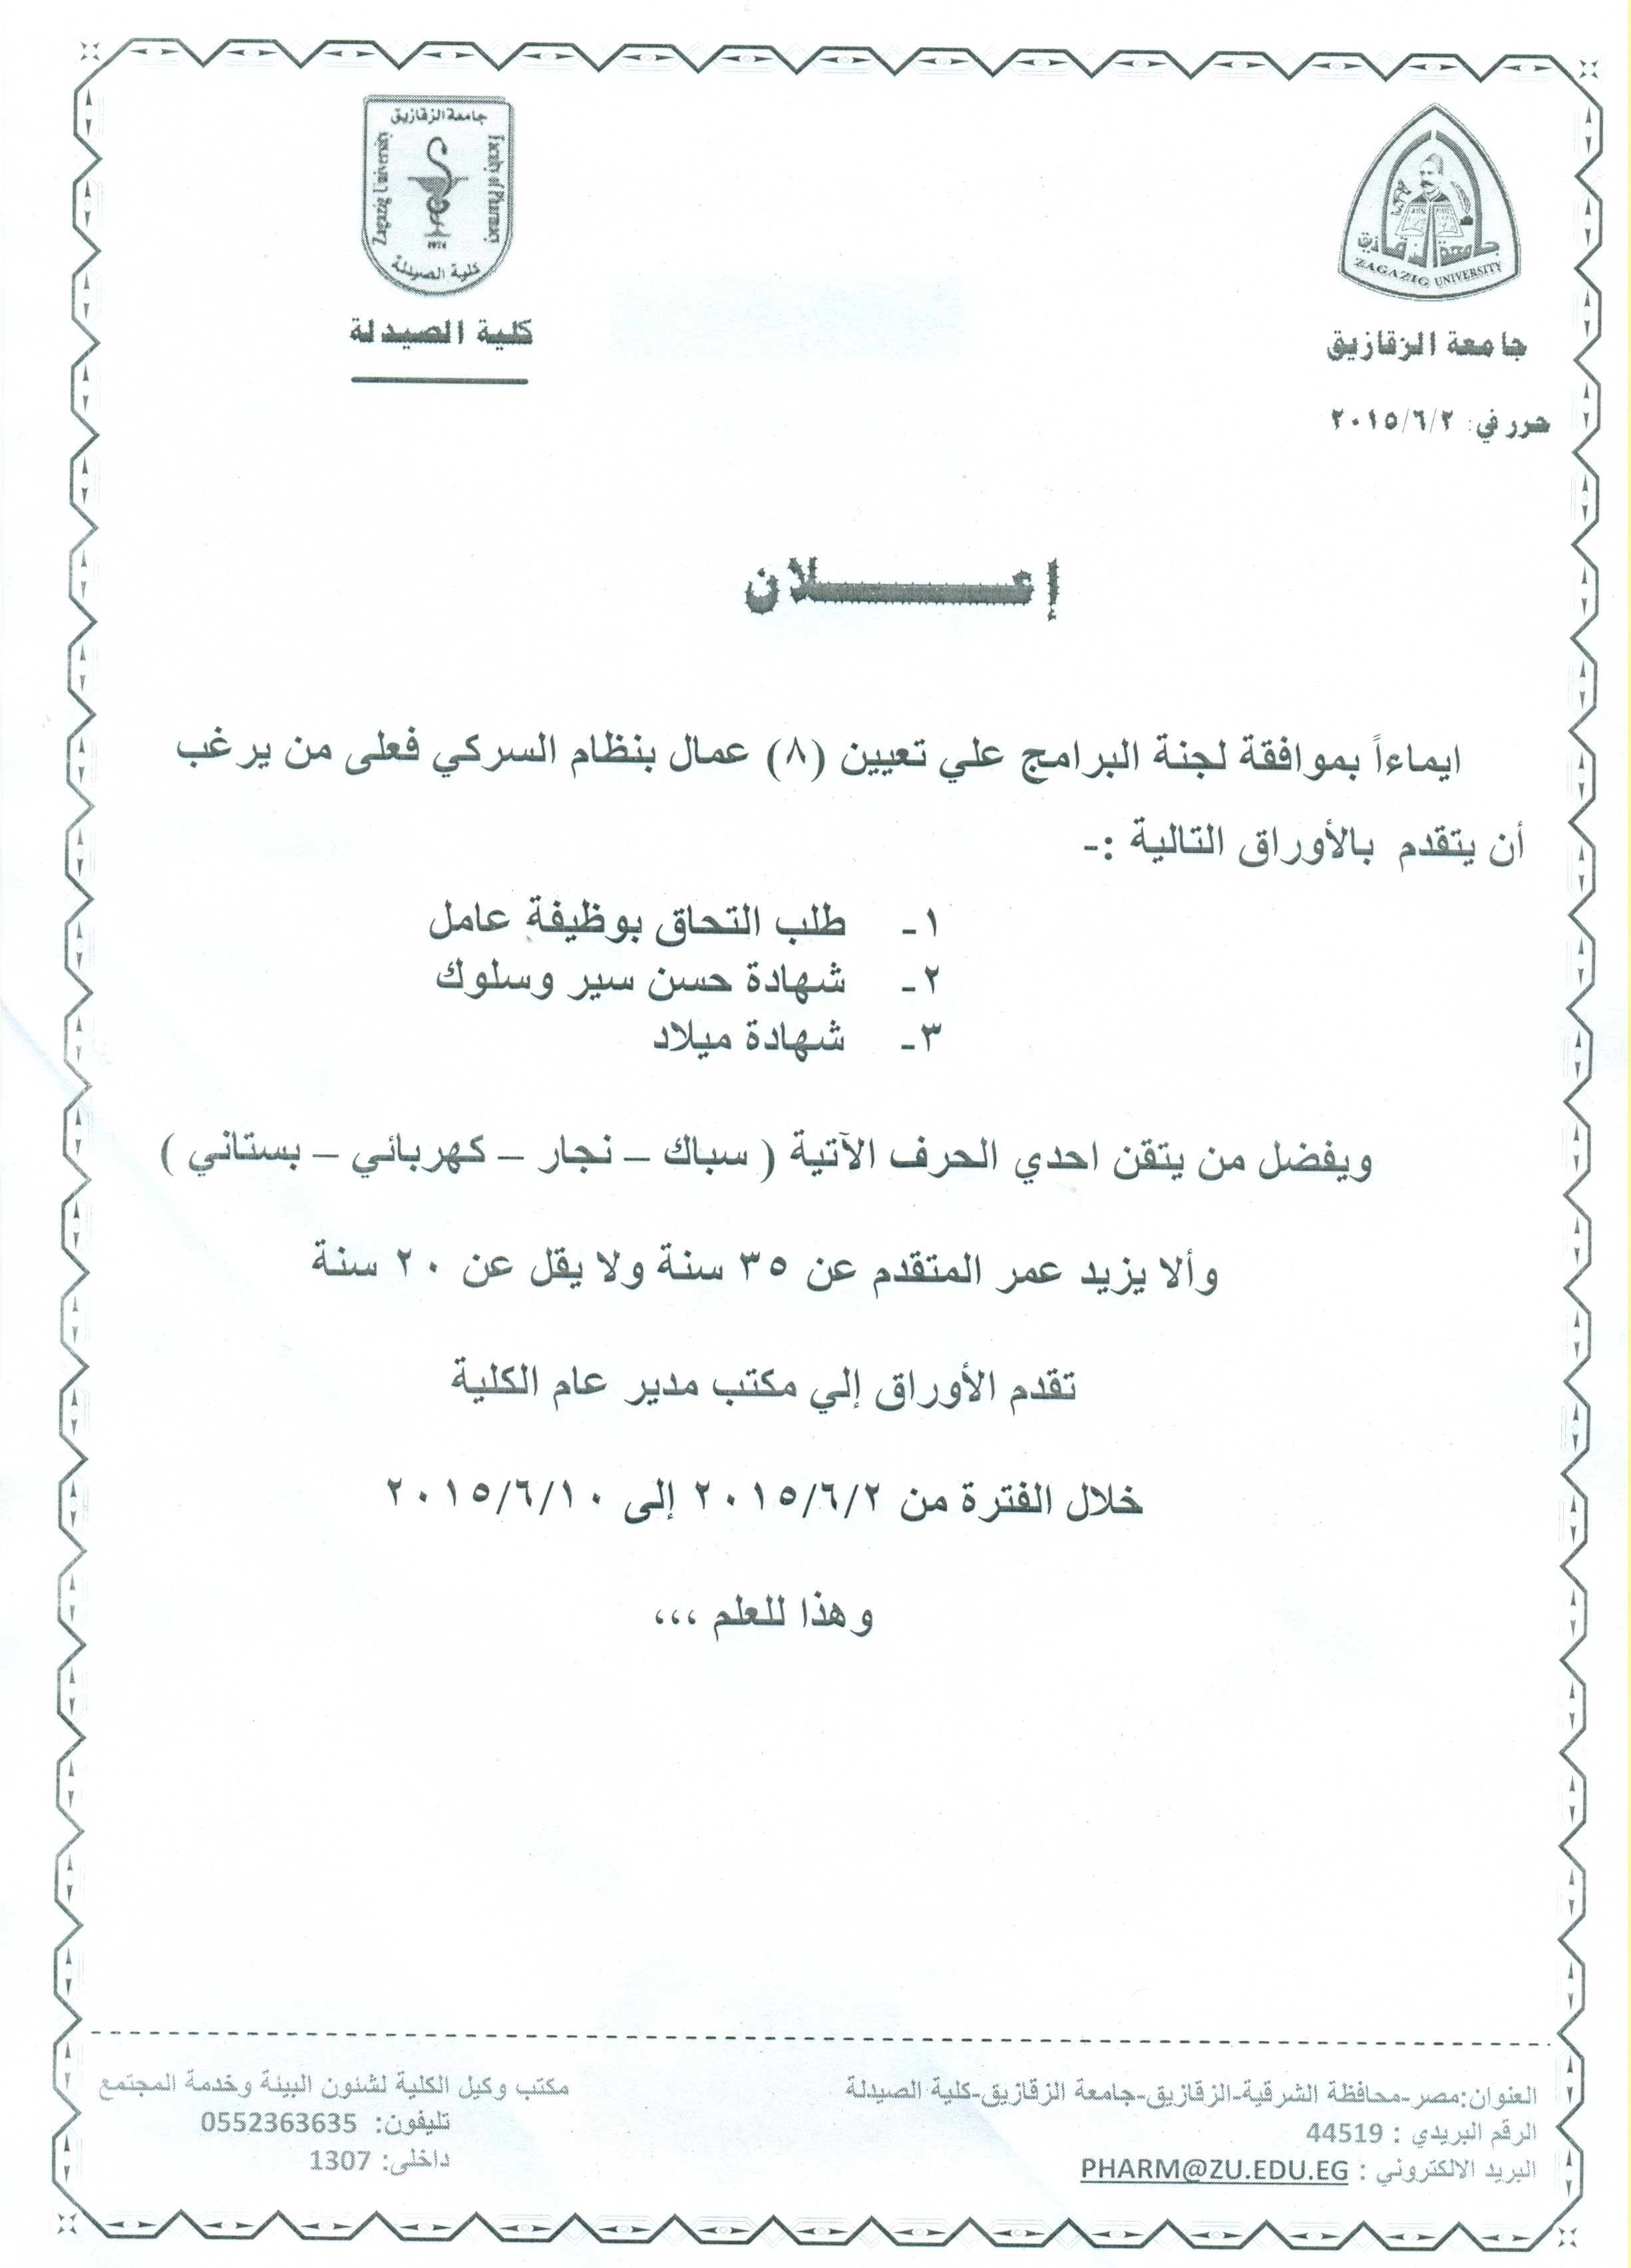 جامعة الزقازيق
ZAGAZIG UNIVERSITY
جامعة الزقازيق
حرر في: ٢٠١٥/٦/٢
جامعة الزقازيق
Zagazig University
Faculty of Pharmacy
1974
كلية الصيدلة
كلية الصيدلة
إعــــــــلان
ايماءاً بموافقة لجنة البرامج علي تعيين (٨) عمال بنظام السركي فعلى من يرغب
أن يتقدم بالأوراق التالية :-
١- طلب التحاق بوظيفة عامل
٢- شهادة حسن سير وسلوك
٣- شهادة ميلاد
ويفضل من يتقن احدي الحرف الآتية ( سباك – نجار – كهربائي – بستاني )
وألا يزيد عمر المتقدم عن ٣٥ سنة ولا يقل عن ٢٠ سنة
تقدم الأوراق إلي مكتب مدير عام الكلية
خلال الفترة من ٢٠١٥/٦/٢ إلى ٢٠١٥/٦/١٠
وهذا للعلم ،،،
العنوان:مصر-محافظة الشرقية-الزقازيق-جامعة الزقازيق-كلية الصيدلة
الرقم البريدي : 44519
البريد الالكتروني : PHARM@ZU.EDU.EG
مكتب وكيل الكلية لشئون البيئة وخدمة المجتمع
تليفون: 0552363635
داخلى: 1307